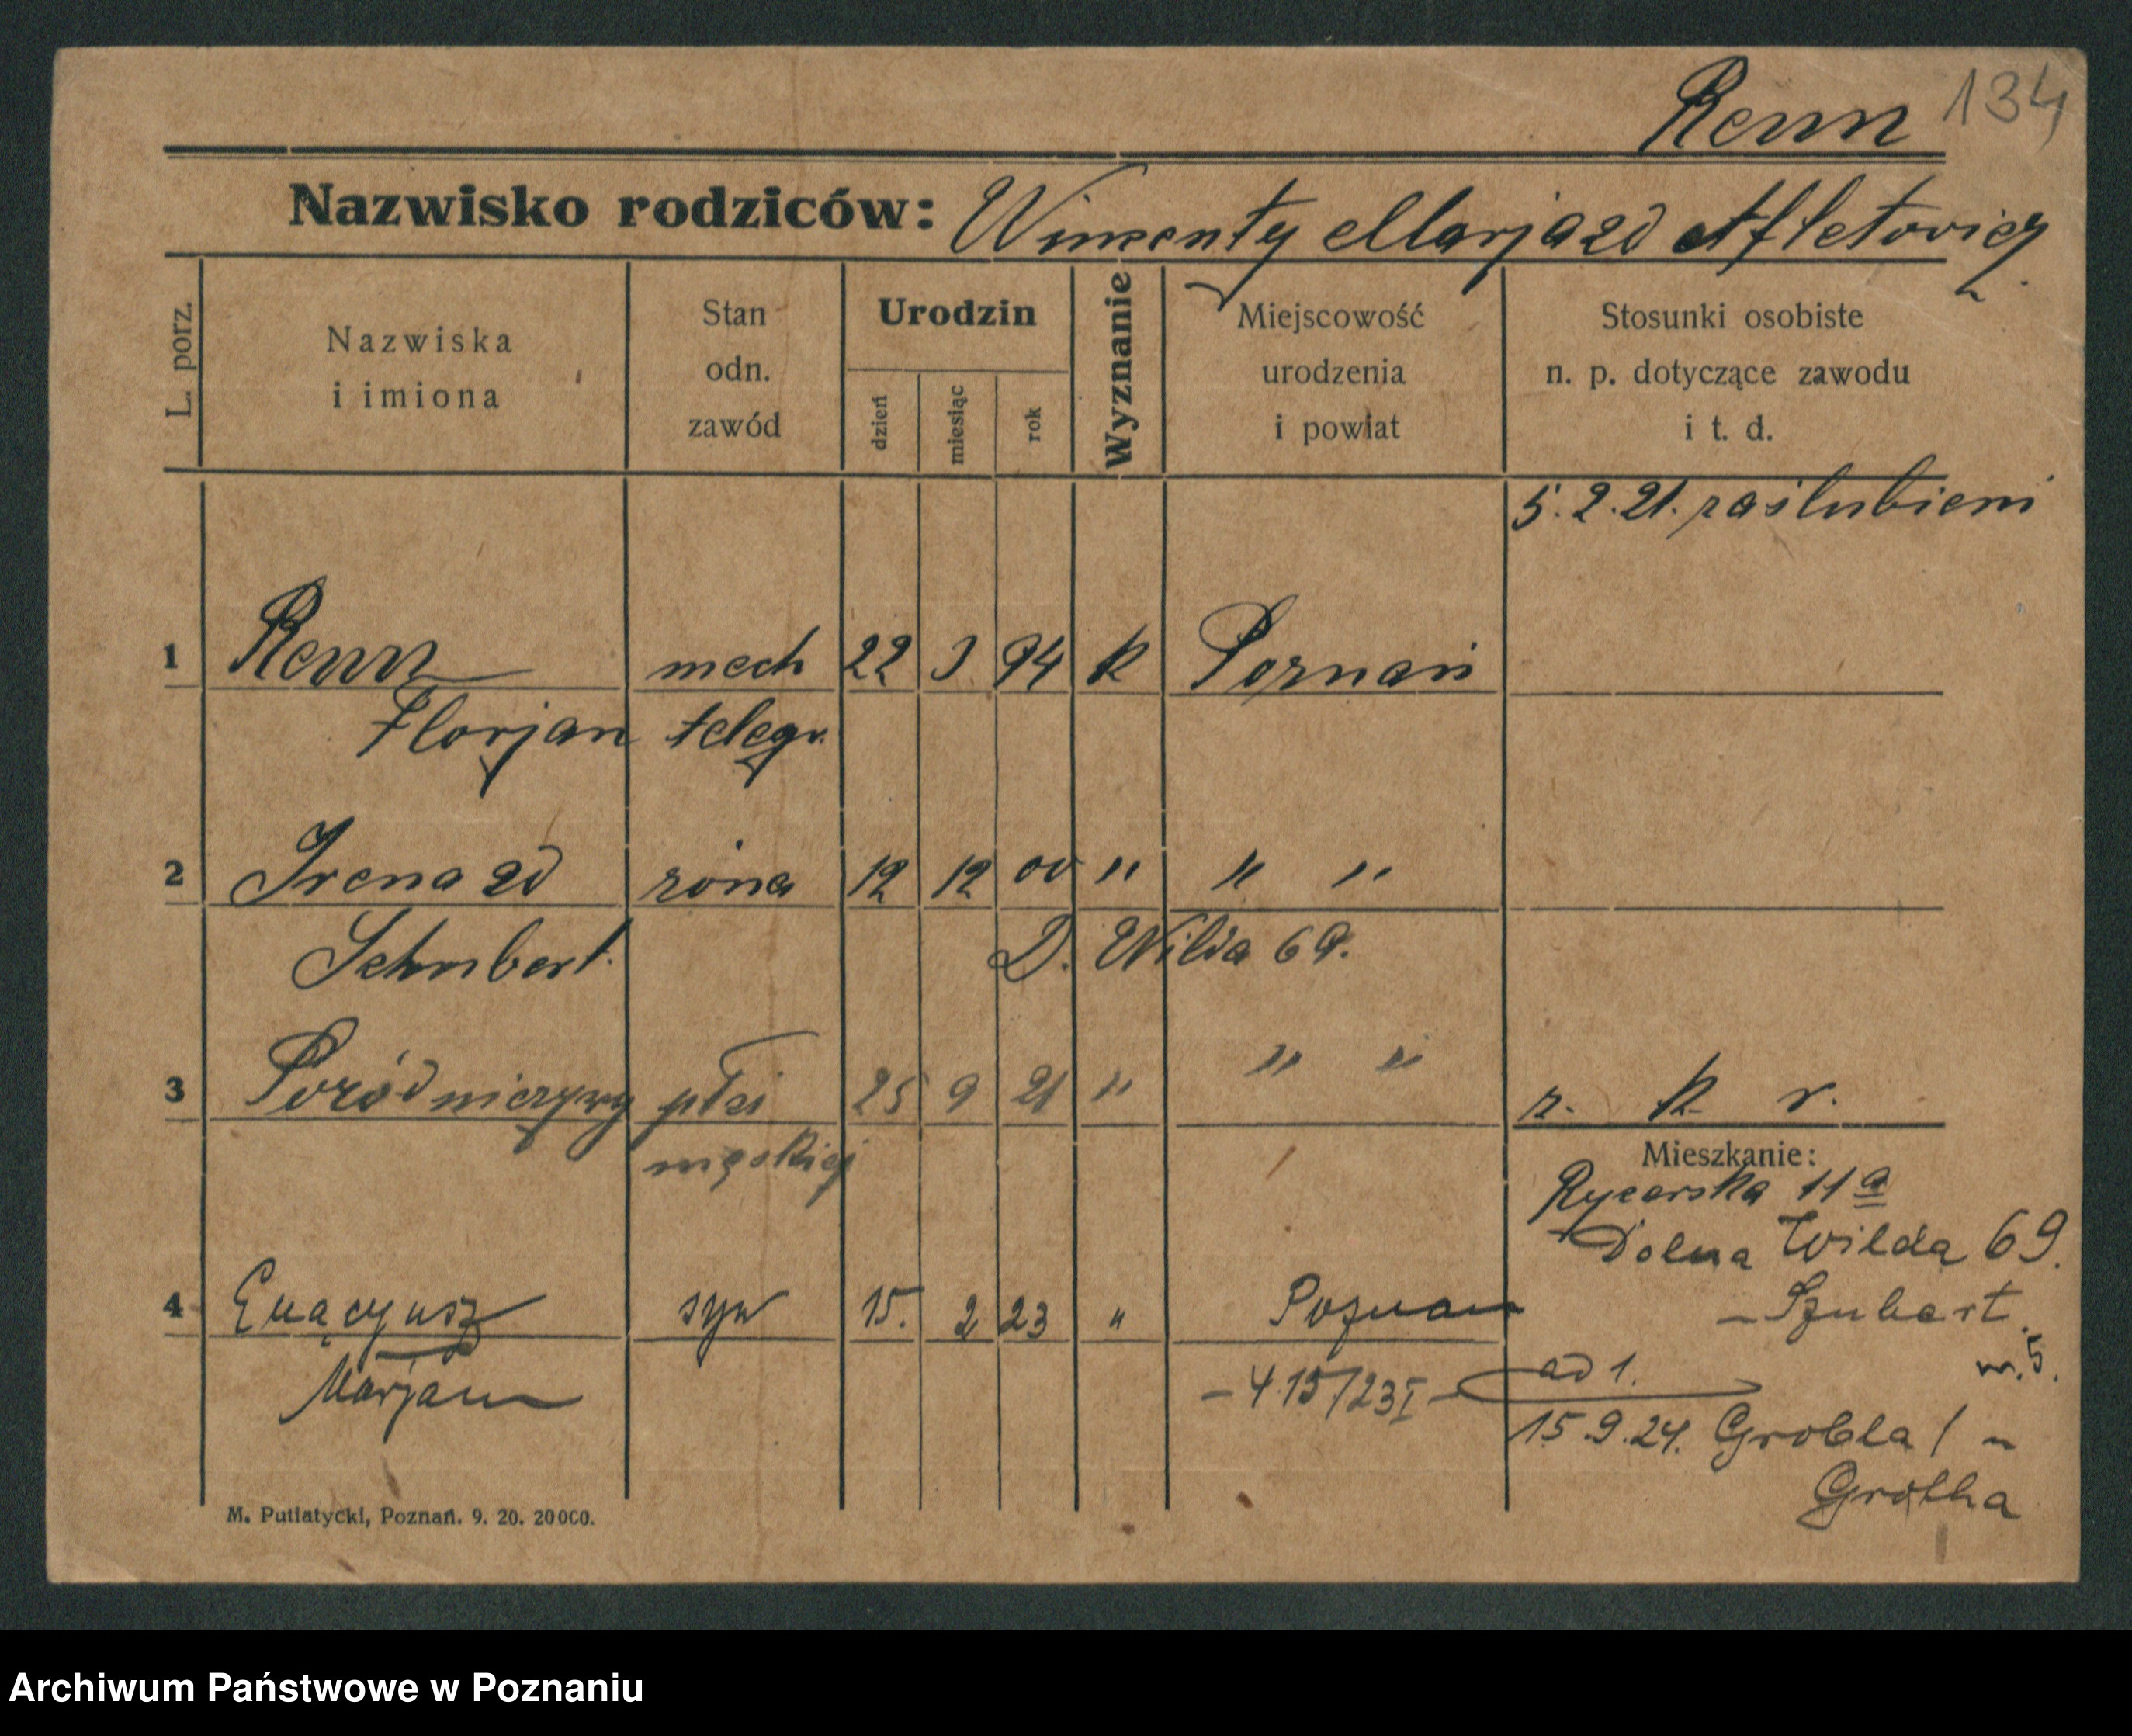 Renn 134
Nazwisko rodziców: Wincenty Marja zd
L. porz.
Nazwiska
i imiona
Stan
odn.
zawód
Urodzin
dzień
miesiąc
rok
Wyznanie
Miejscowość
urodzenia
i powiat
Stosunki osobiste
n. p. dotyczące zawodu
i t. d.
5. 2. 21. zaślubieni
1 Renn mech 22 3 94 k Poznań
Florjan telegr.
2 Irena zd żona 12 12 00 " " "
Schubert. D. Wilda 69.
3 płci 25 9 21 " " "
męskiej
r. k r.
Mieszkanie:
Rycerska 11a
Dolna Wilda 69.
- Szubert.
m. 5.
4 syn 15. 2 23 " Poznan
Marjan - 415/23 I - ad 1.
15.9.24. Grobla 1 -
M. Putiatycki, Poznań. 9. 20. 20000.
Archiwum Państwowe w Poznaniu